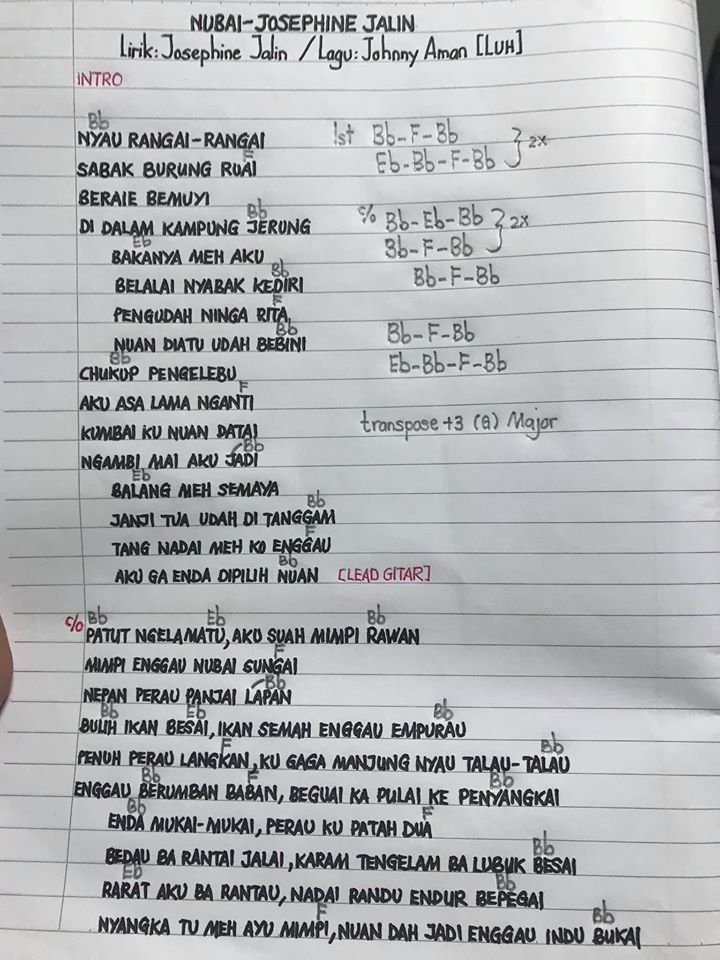 NUBAI-JOSEPHINE JALIN
Lirik: Josephine Jalin / Lagu: Johnny Aman [LUH]
INTRO
Bb
NYAU RANGAI-RANGAI
F
SABAK BURUNG RUAI
BERAIE BEMUYI
Bb
DI DALAM KAMPUNG JERUNG
Eb
BAKANYA MEH AKU
Bb
BELALAI NYABAK KEDIRI
F
PENGUDAH NINGA RITA,
Bb
NUAN DIATU UDAH BEBINI
Bb
CHUKUP PENGELEBU
F
AKU ASA LAMA NGANTI
KUMBAI KU NUAN DATAI
Bb
NGAMBI MAI AKU JADI
Eb
BALANG MEH SEMAYA
Bb
JANJI TUA UDAH DI TANGGAM
F
TANG NADAI MEH KO ENGGAU
Bb
AKU GA ENDA DIPILIH NUAN [LEAD GITAR]
1st Bb-F-Bb
Eb-Bb-F-Bb } 2x
c/o Bb-Eb-Bb
Bb-F-Bb } 2x
Bb-F-Bb
Bb-F-Bb
Eb-Bb-F-Bb
transpose +3 (G) Major
c/o Bb Eb Bb
PATUT NGELAMATU, AKU SUAH MIMPI RAWAN
F
MIMPI ENGGAU NUBAI SUNGAI
Bb
NEPAN PERAU PANJAI LAPAN
Bb Eb Bb
BULIH IKAN BESAI, IKAN SEMAH ENGGAU EMPURAU
F Bb
PENUH PERAU LANGKAN, KU GAGA MANJUNG NYAU TALAU-TALAU
Bb F Bb
ENGGAU BERUMBAN BABAN, BEGUAI KA PULAI KE PENYANGKAI
Bb F
ENDA MUKAI-MUKAI, PERAU KU PATAH DUA
Bb
BEDAU BA RANTAI JALAI, KARAM TENGELAM BA LUBUK BESAI
Eb Bb
RARAT AKU BA RANTAU, NADAI RANDU ENDUR BEPEGAI
F Bb
NYANGKA TU MEH AYU MIMPI, NUAN DAH JADI ENGGAU INDU BUKAI